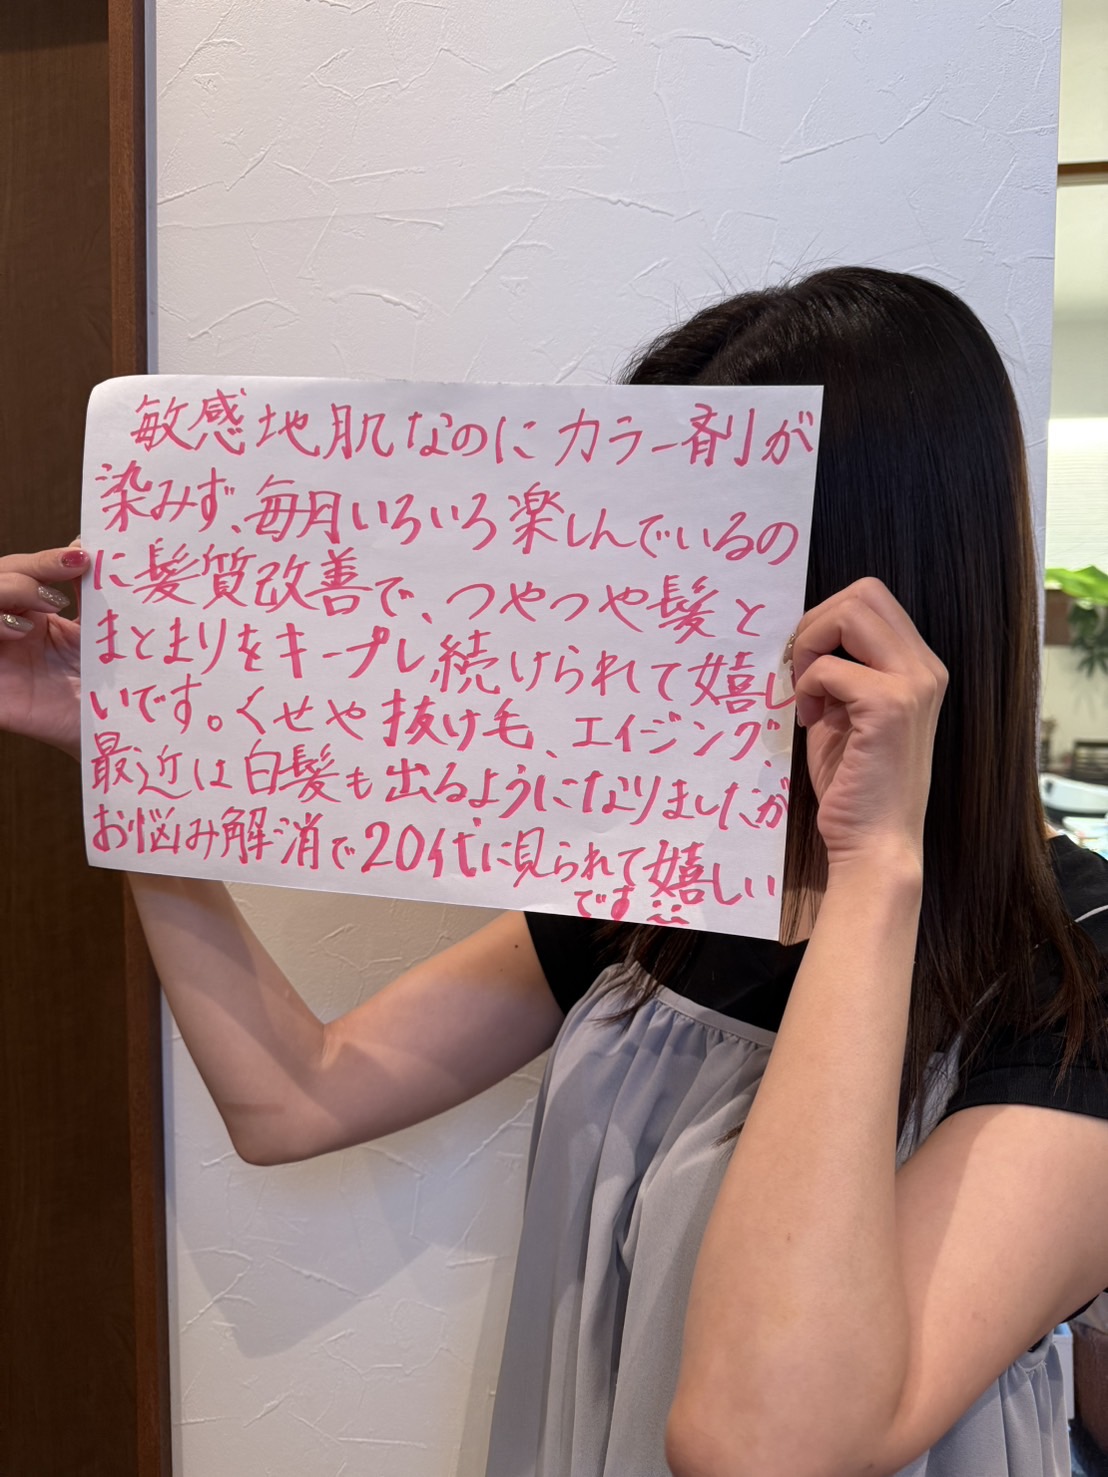 敏感地肌なのにカラー剤が
染みず、毎月いろいろ楽しんでいるの
に髪質改善で、つやつや髪と
まとまりをキープし続けられて嬉し
いです。くせや抜け毛、エイジング、
最近は白髪も出るようになりましたが
お悩み解消で20代に見られて嬉しい
です